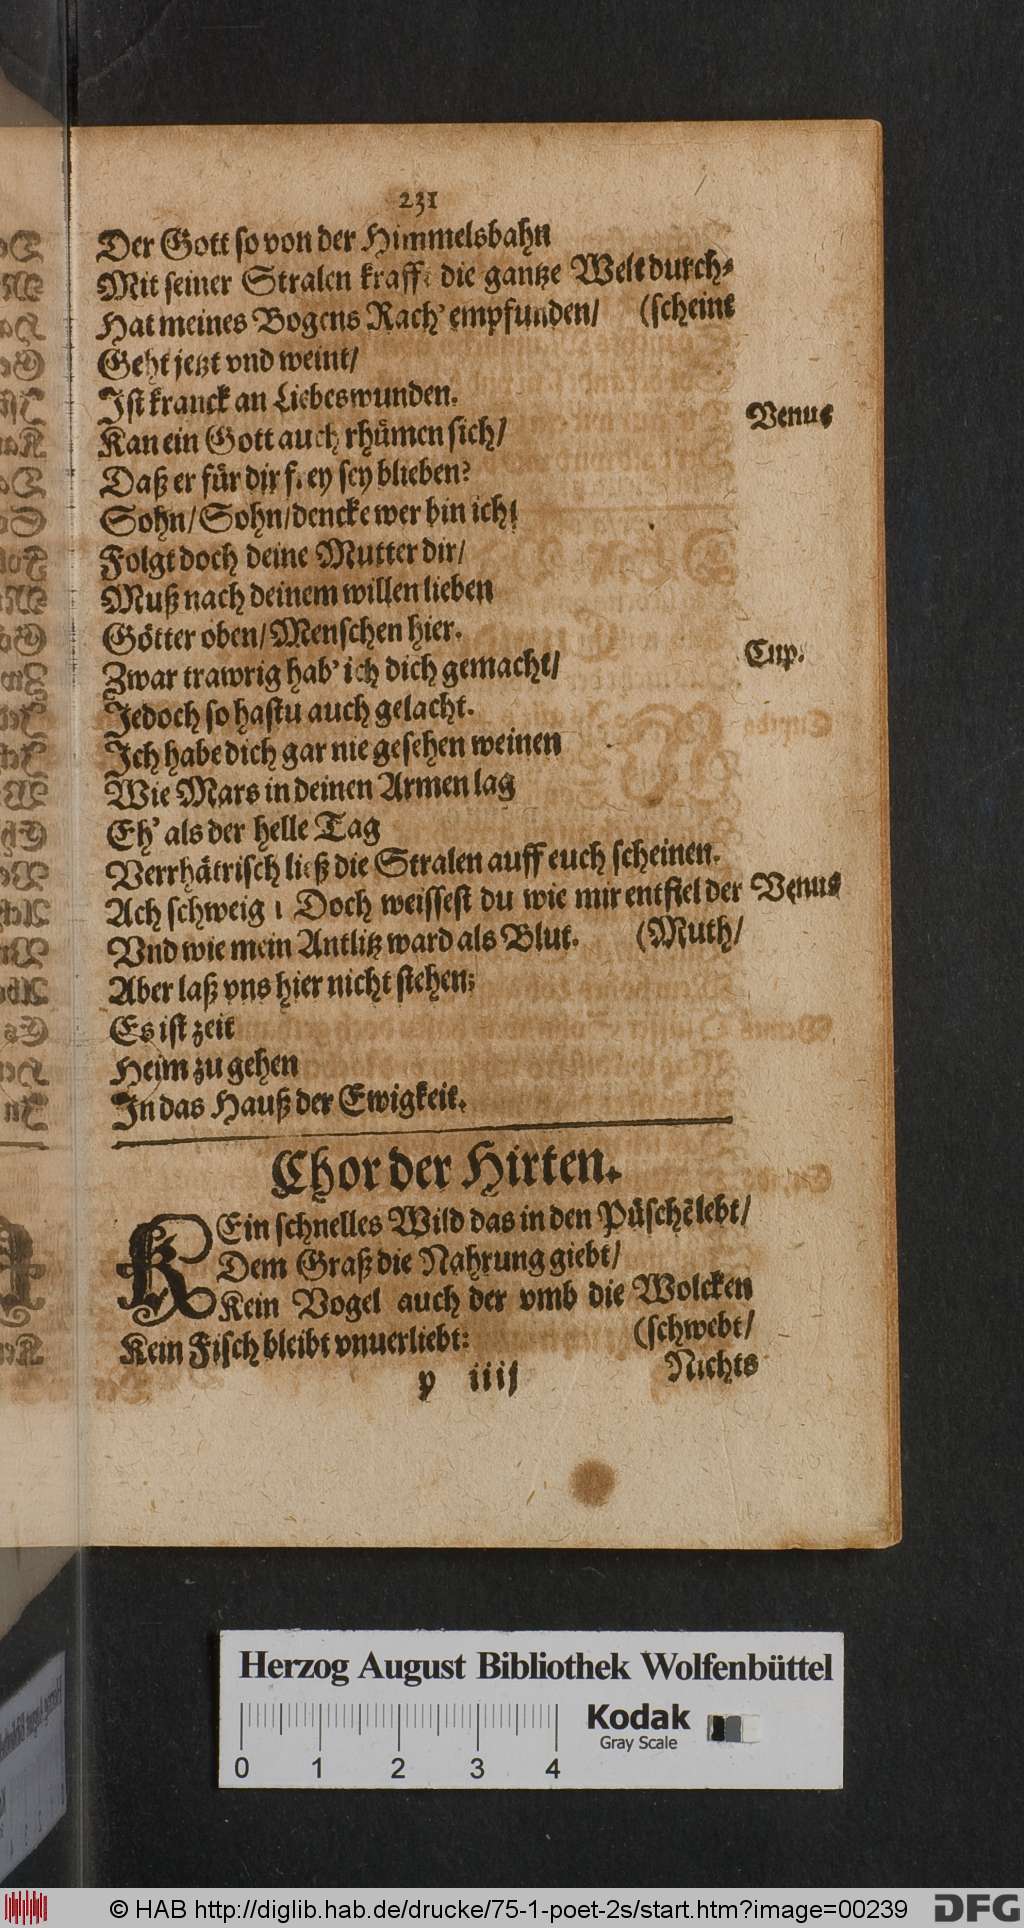 231
Der Gott so von der Himmelsbahn
Mit seiner Stralen krafft die gantze Welt durch⸗
Hat meines Bogens Rach' empfunden/ (scheint
Geht jetzt vnd weint/
Ist kranck an Liebeswunden.
Kan ein Gott auch rhümen sich/ Venus
Daß er für dir frey sey blieben?
Sohn/Sohn/dencke wer bin ich!
Folgt doch deine Mutter dir/
Muß nach deinem willen lieben
Götter oben/Menschen hier.
Zwar trawrig hab' ich dich gemacht/ Cup.
Jedoch so hastu auch gelacht.
Ich habe dich gar nie gesehen weinen
Wie Mars in deinen Armen lag
Eh' als der helle Tag
Verrhätrisch ließ die Stralen auff euch scheinen.
Ach schweig! Doch weissest du wie mir entfiel der Venus
Vnd wie mein Antlitz ward als Blut. (Muth/
Aber laß vns hier nicht stehen;
Es ist zeit
Heim zu gehen
In das Hauß der Ewigkeit.
Chor der Hirten.
KEin schnelles Wild das in den Püschẽ lebt/
Dem Graß die Nahrung giebt/
Kein Vogel auch der vmb die Wolcken
Kein Fisch bleibt vnuerliebt: (schwebt/
p iiij Nichts
Herzog August Bibliothek Wolfenbüttel
Kodak
Gray Scale
0 1 2 3 4
© HAB http://diglib.hab.de/drucke/75-1-poet-2s/start.htm?image=00239
DFG